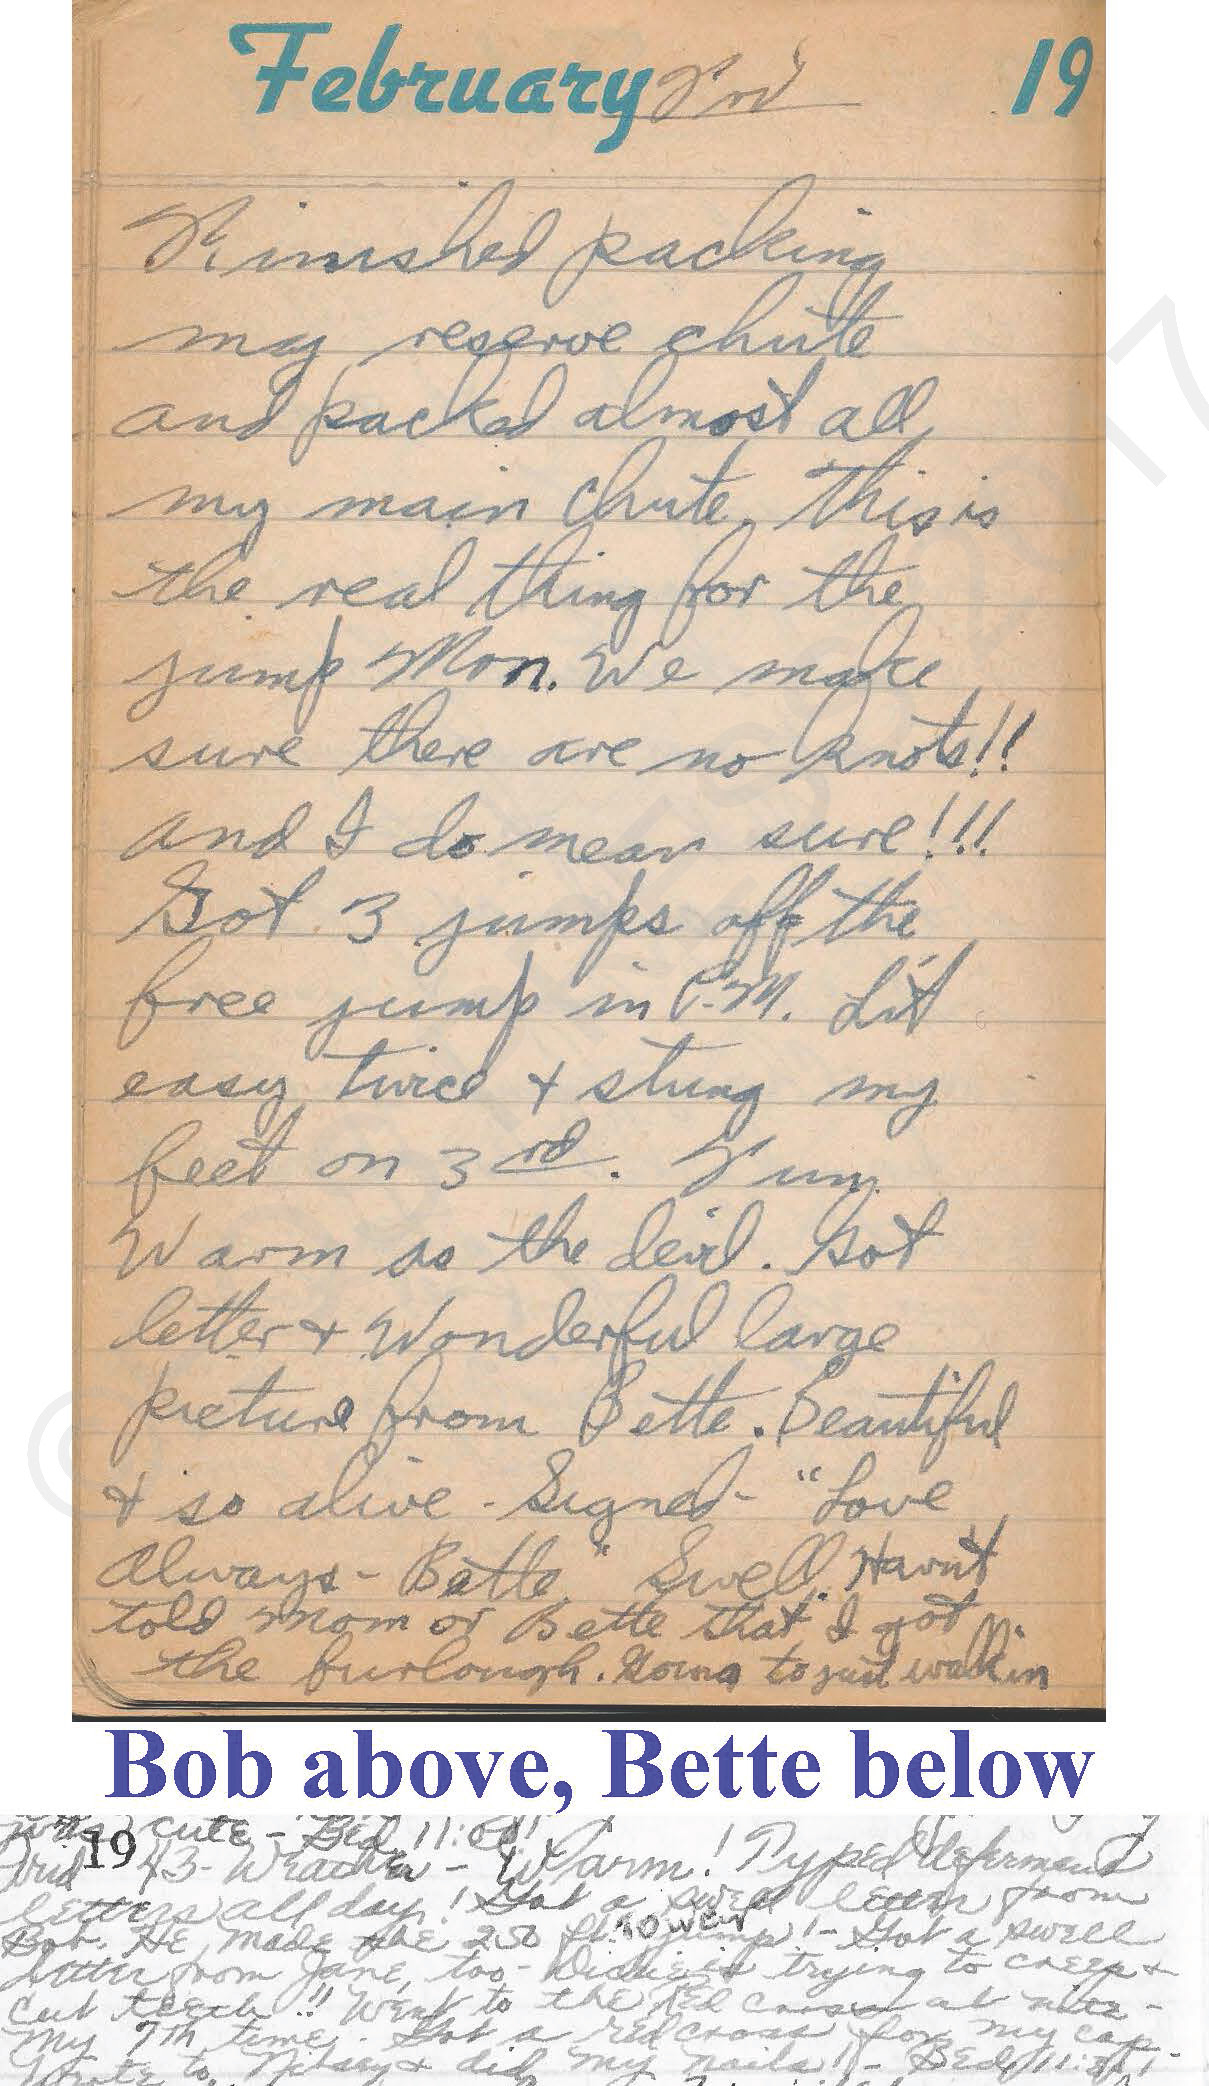 February Frid 19
Finished packing
my reserve chute
and packed almost all
my main chute, this is
the real thing for the
jump Mon. We make
sure there are no knots!!
and I do mean sure!!!
Got 3 jumps off the
free jump in P.M. Lit
easy twice & stung my
feet on 3rd. Fun.
Warm as the devil. Got
letter & Wonderful large
picture from Bette. Beautiful
& so alive - Signed - "Love
Always - Bette" Swell. Havnt
told Mom or Bette that I got
the furlough. Going to just walk in
Bob above, Bette below
was cute - Bed 11:00!
Frid 19 43 - Weather - Warm! Typed deferment
letters all day! Got a swell letter from
Bob. He made the 250 ft. tower jump! - Got a swell
letter from Jane, too - is trying to creep &
cut teeth!! Went to the Red Cross at nite -
My 7th time. Got a red cross for my cap
Wrote to & did my nails! - Bed 11: